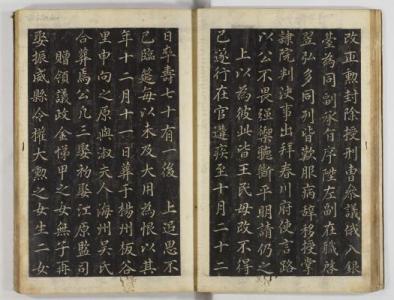 改正勲封除授刑曹參議俄入銀
臺為同副承行序陞左副在職殊
翌弘多同列皆歎服病辭移授掌
隷院判決事出拜春川府使言路
以公不畏強禦聽斷平明請仍之
上以為彼此皆王民毋改不得
已遂行在官遘疾至十月二十二
日卒壽七十有一後　上追思不
已臨筵每以未及大用為恨以其
年十二月十一日葬于楊州板谷
里申向之原與淑夫人海州吳氏
合葬焉公凡三娶初娶江原監司
贈領議政金悌甲之女無子再
娶振威縣令權大勲之女生二女